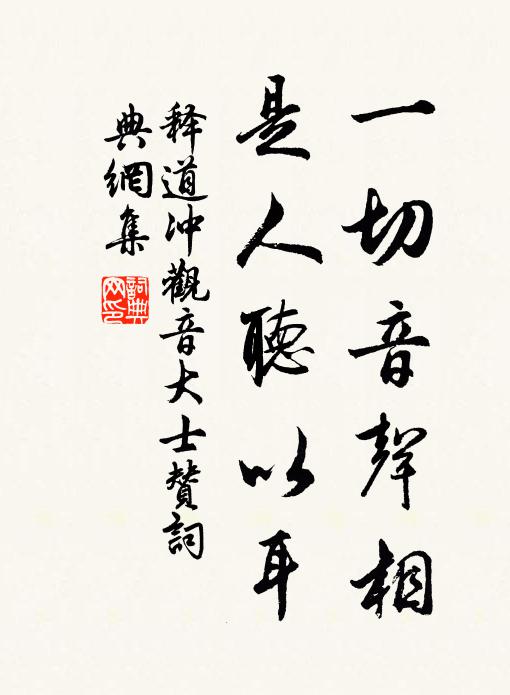 一切音聲相
是人聽以耳
释道冲觀音大士赞詞
典網集
詞典
网印